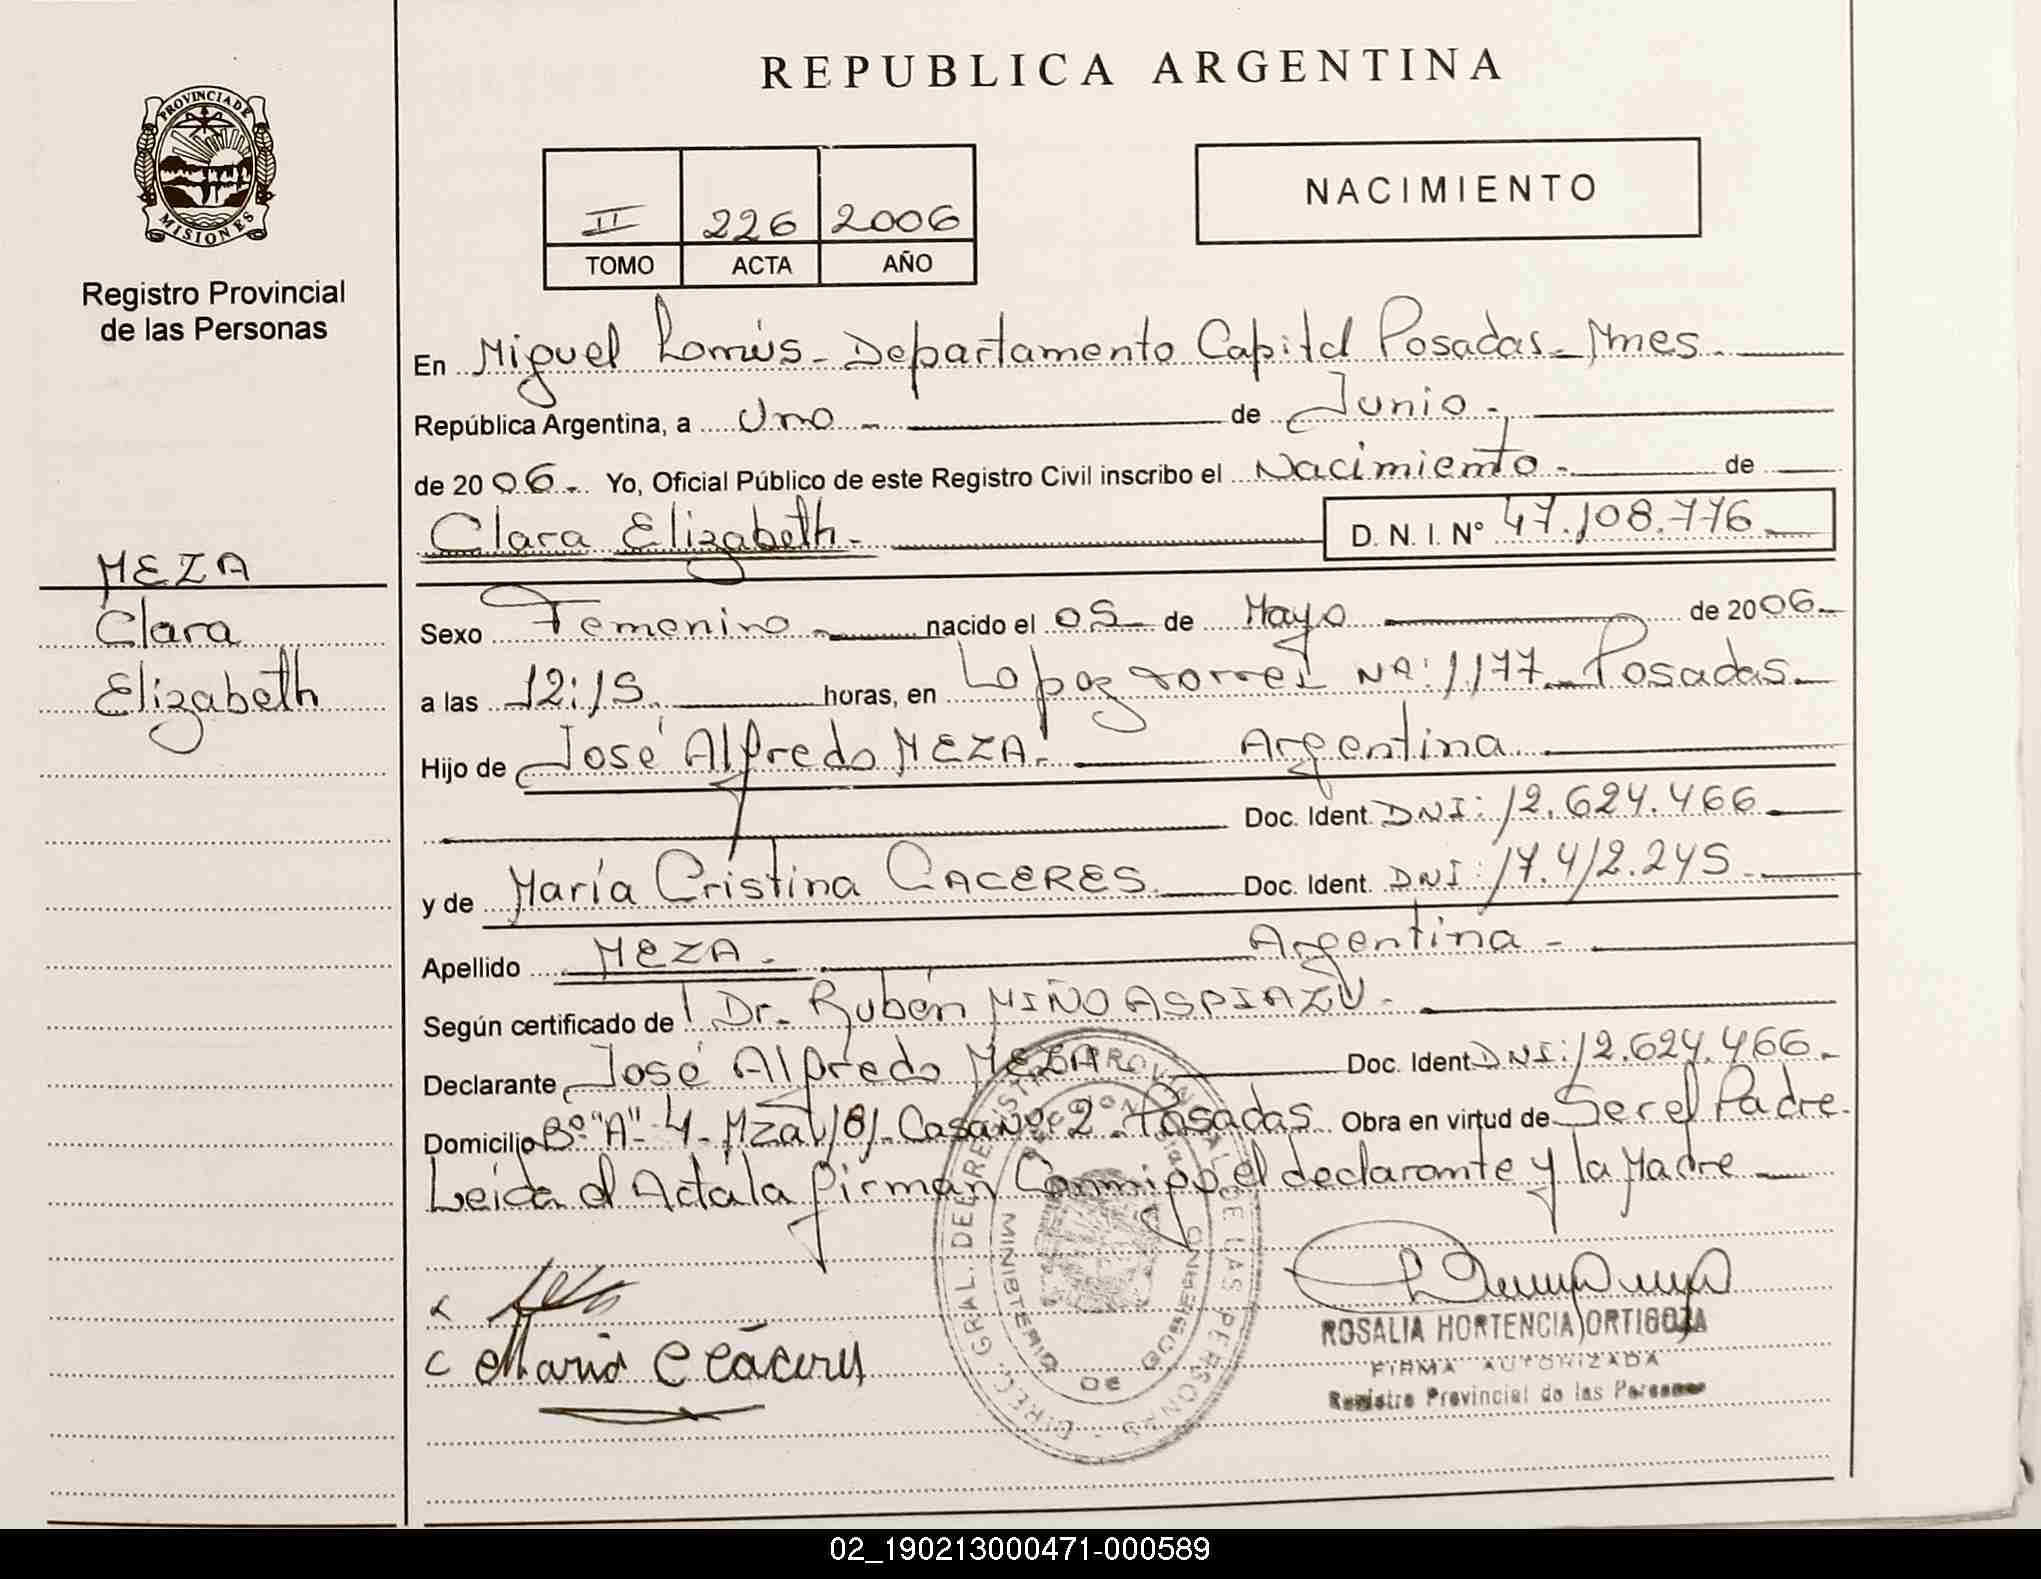 REPUBLICA ARGENTINA
PROVINCIA DE
MISIONES
Registro Provincial
de las Personas
NACIMIENTO
II 226 2006
TOMO ACTA AÑO
En Miguel Lanús - Departamento Capital Posadas - Mnes.
República Argentina, a Uno - de Junio -
de 2006 - Yo, Oficial Público de este Registro Civil inscribo el Nacimiento - de
Clara Elizabeth - D. N. I. Nº 47.108.776
MEZA
Clara
Elizabeth
Sexo Femenino - nacido el 05 de Mayo de 2006 -
a las 12:15 horas, en Lopez Torres Nº: 1.177 - Posadas -
Hijo de José Alfredo MEZA - Argentina
Doc. Ident. DNI: 12.624.466
y de María Cristina CACERES Doc. Ident. DNI: 17.412.245
Apellido MEZA - Argentina -
Según certificado de Dr. Rubén MIÑO ASPIAZU -
Declarante José Alfredo MEZA Doc. Ident. DNI: 12.624.466 -
Domicilio Bº "A" - 4 - Mza 181 - Casa Nº 2 - Posadas. Obra en virtud de Ser el Padre -
Leida el Acta la firman Conmigo el declarante y la Madre
Maria C Cáceres
DIREC. GRAL. DEL REGISTRO PROVINCIAL DE LAS PERSONAS
MINISTERIO DE GOBIERNO
ROSALIA HORTENCIA ORTIGOZA
FIRMA AUTORIZADA
Registro Provincial de las Personas
02_190213000471-000589